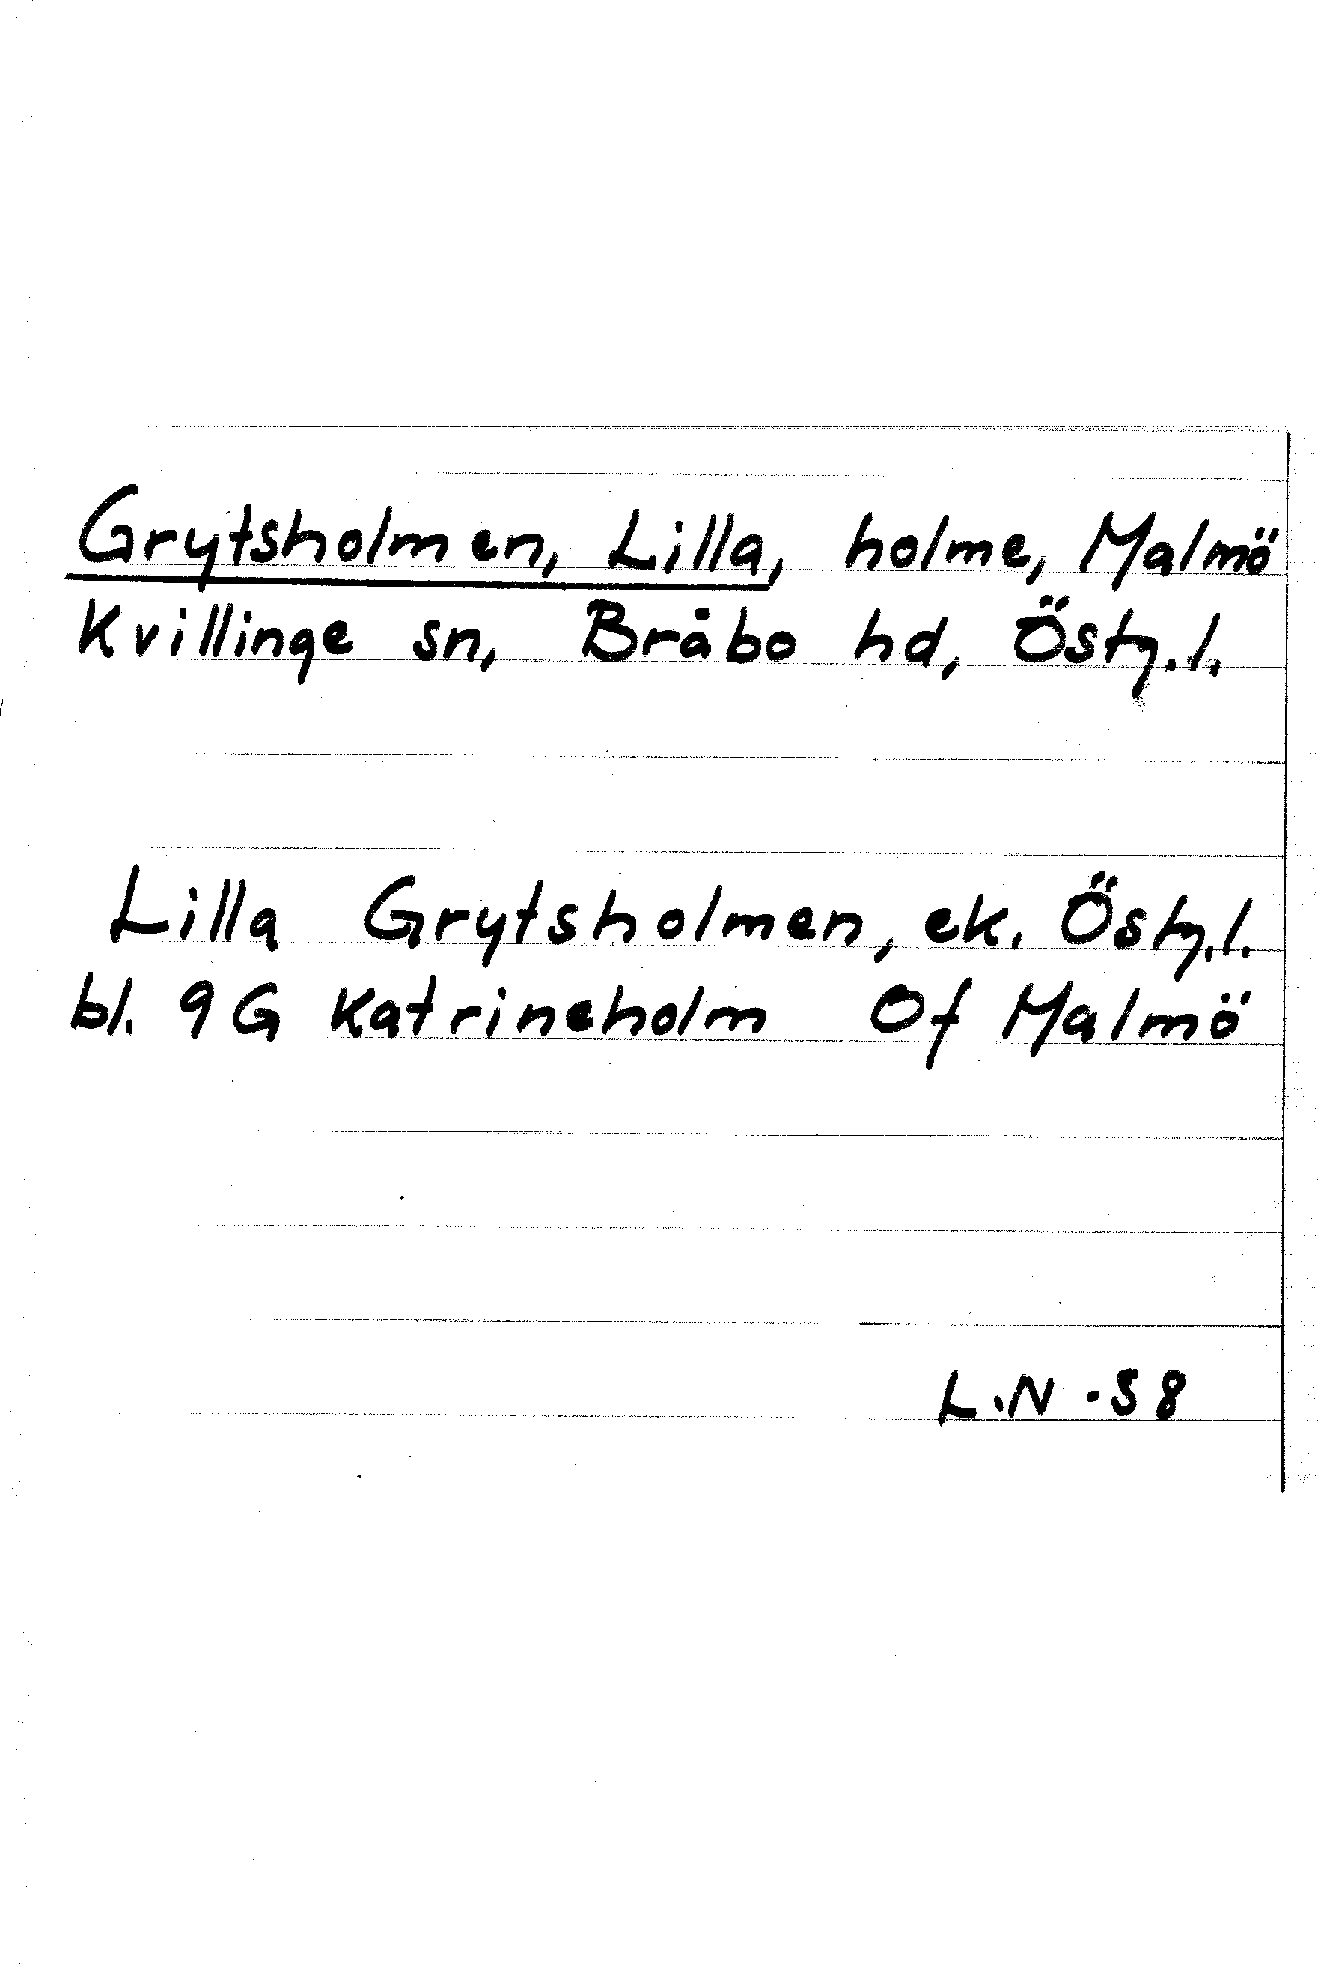 Grytsholmen, Lilla, holme, Malmö
Kvillinge sn, Bråbo hd, Östg.l.
Lilla Grytsholmen, ek. Östg.l.
bl. 9G Katrineholm Of Malmö
L.N -58